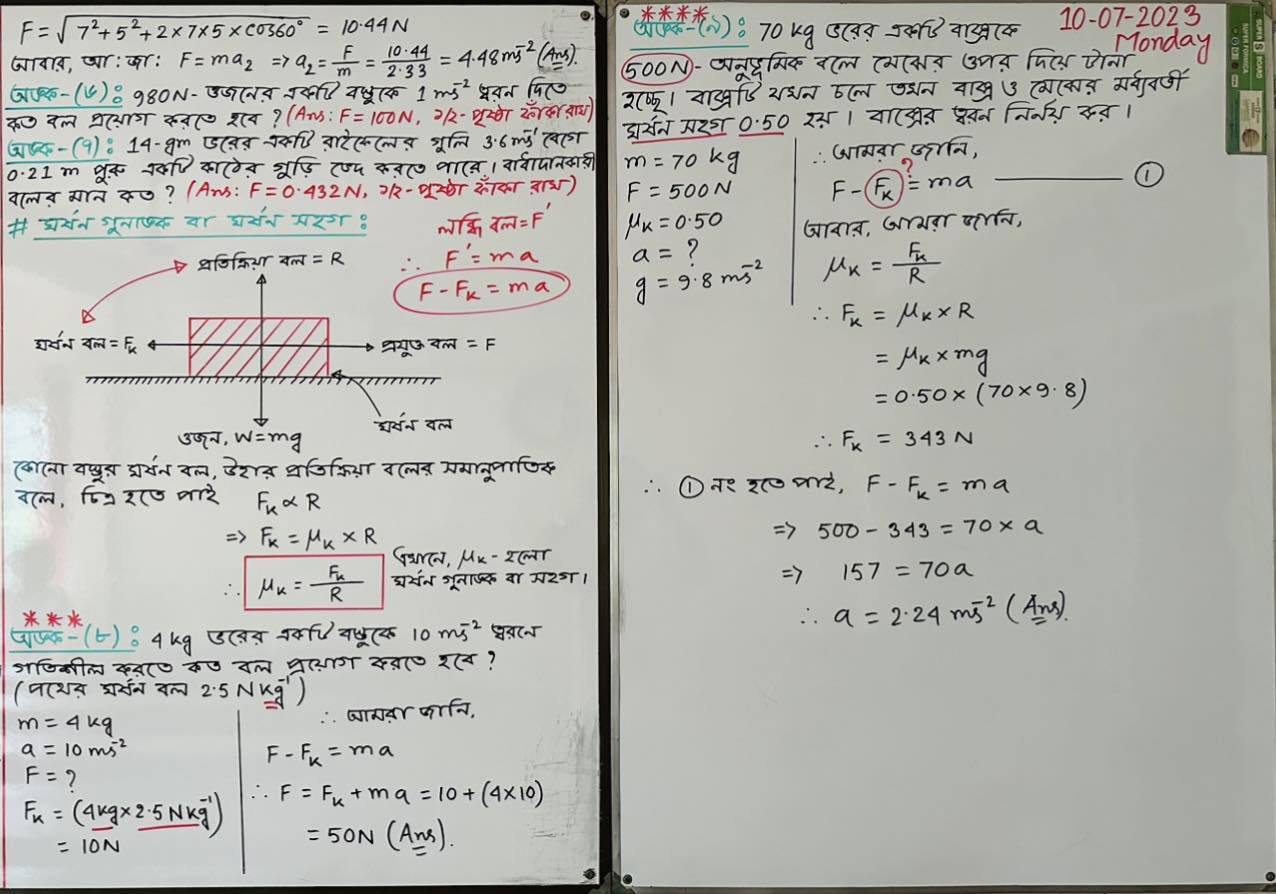 F = √7²+5²+2×7×5×cos60° = 10.44N
আবার, আ:জা: F = ma₂ => a₂ = F/m = 10.44/2.33 = 4.48ms⁻² (Ans).
অংক-(৬): 980N- ওজনের একটি বস্তুকে 1ms⁻² ত্বরন দিতে
কত বল প্রয়োগ করতে হবে? (Ans: F = 100N, ১/২- পৃষ্ঠা ফাঁকা রাখ)
অংক-(৭): 14-gm ভরের একটি রাইফেলের গুলি 3.6ms⁻¹ বেগে
0.21 m পুরু একটি কাঠের গুড়ি ভেদ করতে পারে। বাধাদানকারী
বলের মান কত? (Ans: F = 0.432N, ১/২- পৃষ্ঠা ফাঁকা রাখ)
# ঘর্ষন গুনাঙ্ক বা ঘর্ষন সহগ:
লব্ধি বল = F′
∴ F′ = ma
F - Fₖ = ma
প্রতিক্রিয়া বল = R
ঘর্ষন বল = Fₖ
প্রযুক্ত বল = F
ঘর্ষন বল
ওজন, W = mg
কোনো বস্তুর ঘর্ষন বল, উহার প্রতিক্রিয়া বলের সমানুপাতিক
বলে, চিত্র হতে পাই Fₖ ∝ R
=> Fₖ = μₖ × R
∴ μₖ = Fₖ/R
এখানে, μₖ- হলো
ঘর্ষন গুনাঙ্ক বা সহগ।
***
অংক-(৮): 4kg ভরের একটি বস্তুকে 10 ms⁻² ত্বরনে
গতিশীল করতে কত বল প্রয়োগ করতে হবে?
(পথের ঘর্ষন বল 2.5 N kg⁻¹)
m = 4kg
a = 10 ms⁻²
F = ?
Fₖ = (4kg × 2.5 N kg⁻¹)
= 10N
∴ আমরা জানি,
F - Fₖ = ma
∴ F = Fₖ + ma = 10 + (4×10)
= 50N (Ans).
****
10-07-2023
Monday
অংক-(৯): 70 kg ভরের একটি বাক্সকে
500N - অনুভূমিক বলে মেঝের ওপর দিয়ে টানা
হচ্ছে। বাক্সটি যখন চলে তখন বাক্স ও মেঝের মধ্যবর্তী
ঘর্ষন সহগ 0.50 হয়। বাক্সের ত্বরন নির্নয় কর।
m = 70 kg
F = 500N
μₖ = 0.50
a = ?
g = 9.8 ms⁻²
∴ আমরা জানি,
?
F - Fₖ = ma ——— ①
আবার, আমরা জানি,
μₖ = Fₖ/R
∴ Fₖ = μₖ × R
= μₖ × mg
= 0.50 × (70 × 9.8)
∴ Fₖ = 343 N
∴ ① নং হতে পাই, F - Fₖ = ma
=> 500 - 343 = 70 × a
=> 157 = 70a
∴ a = 2.24 ms⁻² (Ans).